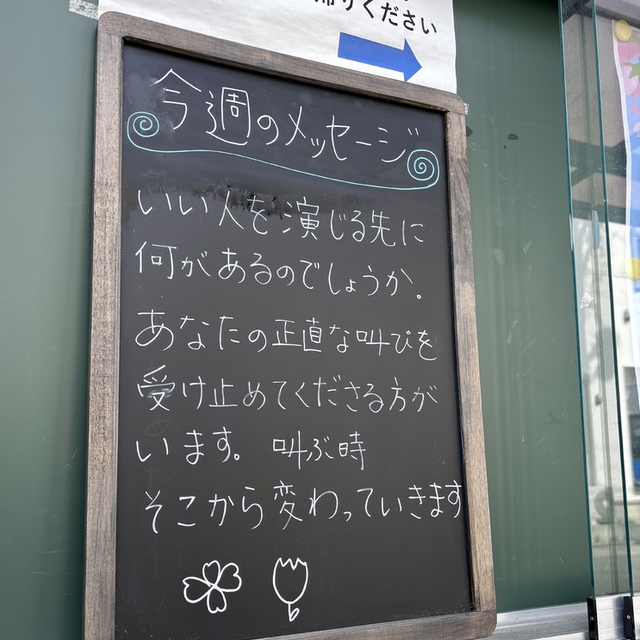 りください
今週のメッセージ
いい人を演じる先に
何があるのでしょうか。
あなたの正直な叫びを
受け止めてくださる方が
います。 叫ぶ時
そこから変わっていきます